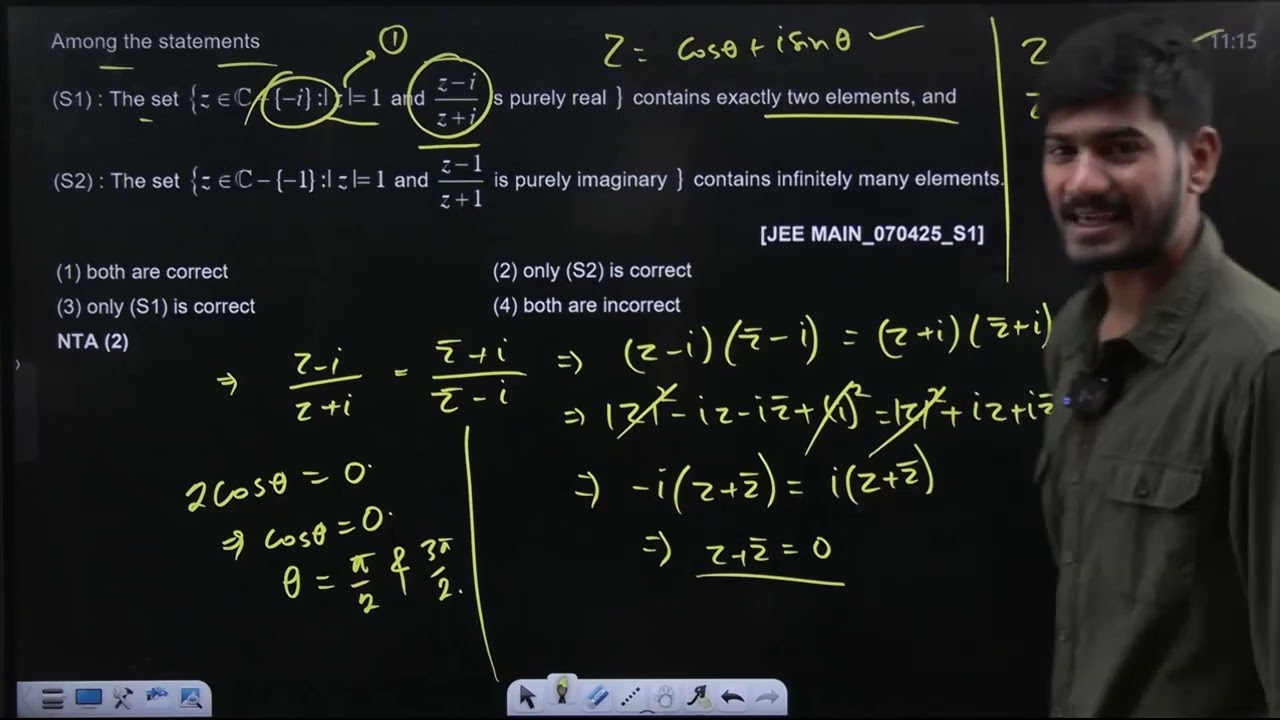 Among the statements
①
Z = cosθ + i sinθ
11:15
(S1) : The set {z ∈ ℂ – {–i} :| z |= 1 and (z–i)/(z+i) is purely real } contains exactly two elements, and
(S2) : The set {z ∈ ℂ – {–1} :| z |= 1 and (z–1)/(z+1) is purely imaginary } contains infinitely many elements.
[JEE MAIN_070425_S1]
(1) both are correct
(2) only (S2) is correct
(3) only (S1) is correct
(4) both are incorrect
NTA (2)
⇒ (z-i)/(z+i) = (z̄+i)/(z̄-i) ⇒ (z-i)(z̄-i) = (z+i)(z̄+i)
⇒ |z|² - iz - iz̄ + (i)² = |z|² + iz + iz̄
⇒ -i(z+z̄) = i(z+z̄)
⇒ z+z̄ = 0
2cosθ = 0.
⇒ cosθ = 0.
θ = π/2 & 3π/2.